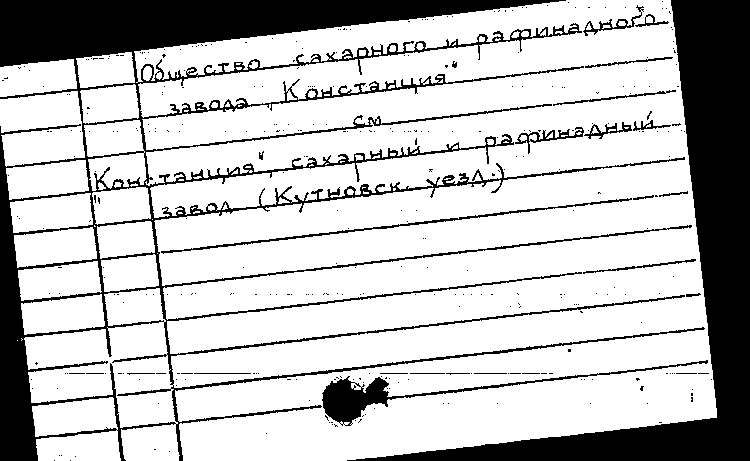 Общество сахарного и рафинадного
завода „Констанция“
см
„Констанция“, сахарный и рафинадный
завод (Кутновск. уезд.)